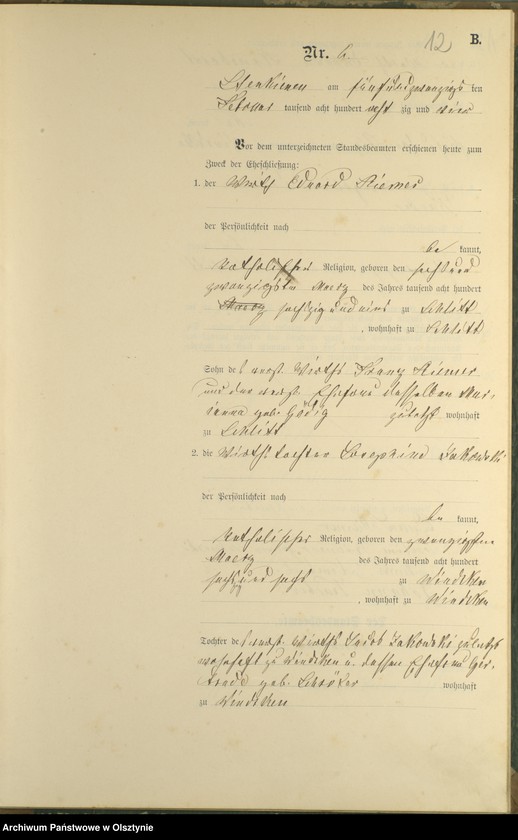 12
B.
Nr. 6
am fünfundzwanzigsten
Februar tausend acht hundert acht zig und vier
Vor dem unterzeichneten Standesbeamten erschienen heute zum
Zweck der Eheschließung:
1. der Wirth Eduard Riemer
der Persönlichkeit nach
be kannt,
katholischer Religion, geboren den sechsund
zwanzigsten Maerz des Jahres tausend acht hundert
Maerz sechszig und eins zu Schlitt
, wohnhaft zu Schlitt
Sohn des verst. Wirths Franz Riemer
und der verst. Ehefrau desselben Mar-
ianna geb. Hödig zuletzt wohnhaft
zu Schlitt
2. die Wirthstochter Josephine Jakowski
der Persönlichkeit nach
be kannt,
katholischer Religion, geboren den zwanzigsten
Maerz des Jahres tausend acht hundert
sechzig und sechs zu Windiken
, wohnhaft zu Windiken
Tochter des verst. Wirths Jacob Jakowski zuletzt
wohnhaft zu Windiken u. dessen Ehefrau Ger-
trude geb. Schröter wohnhaft
zu Windiken
Archiwum Państwowe w Olsztynie